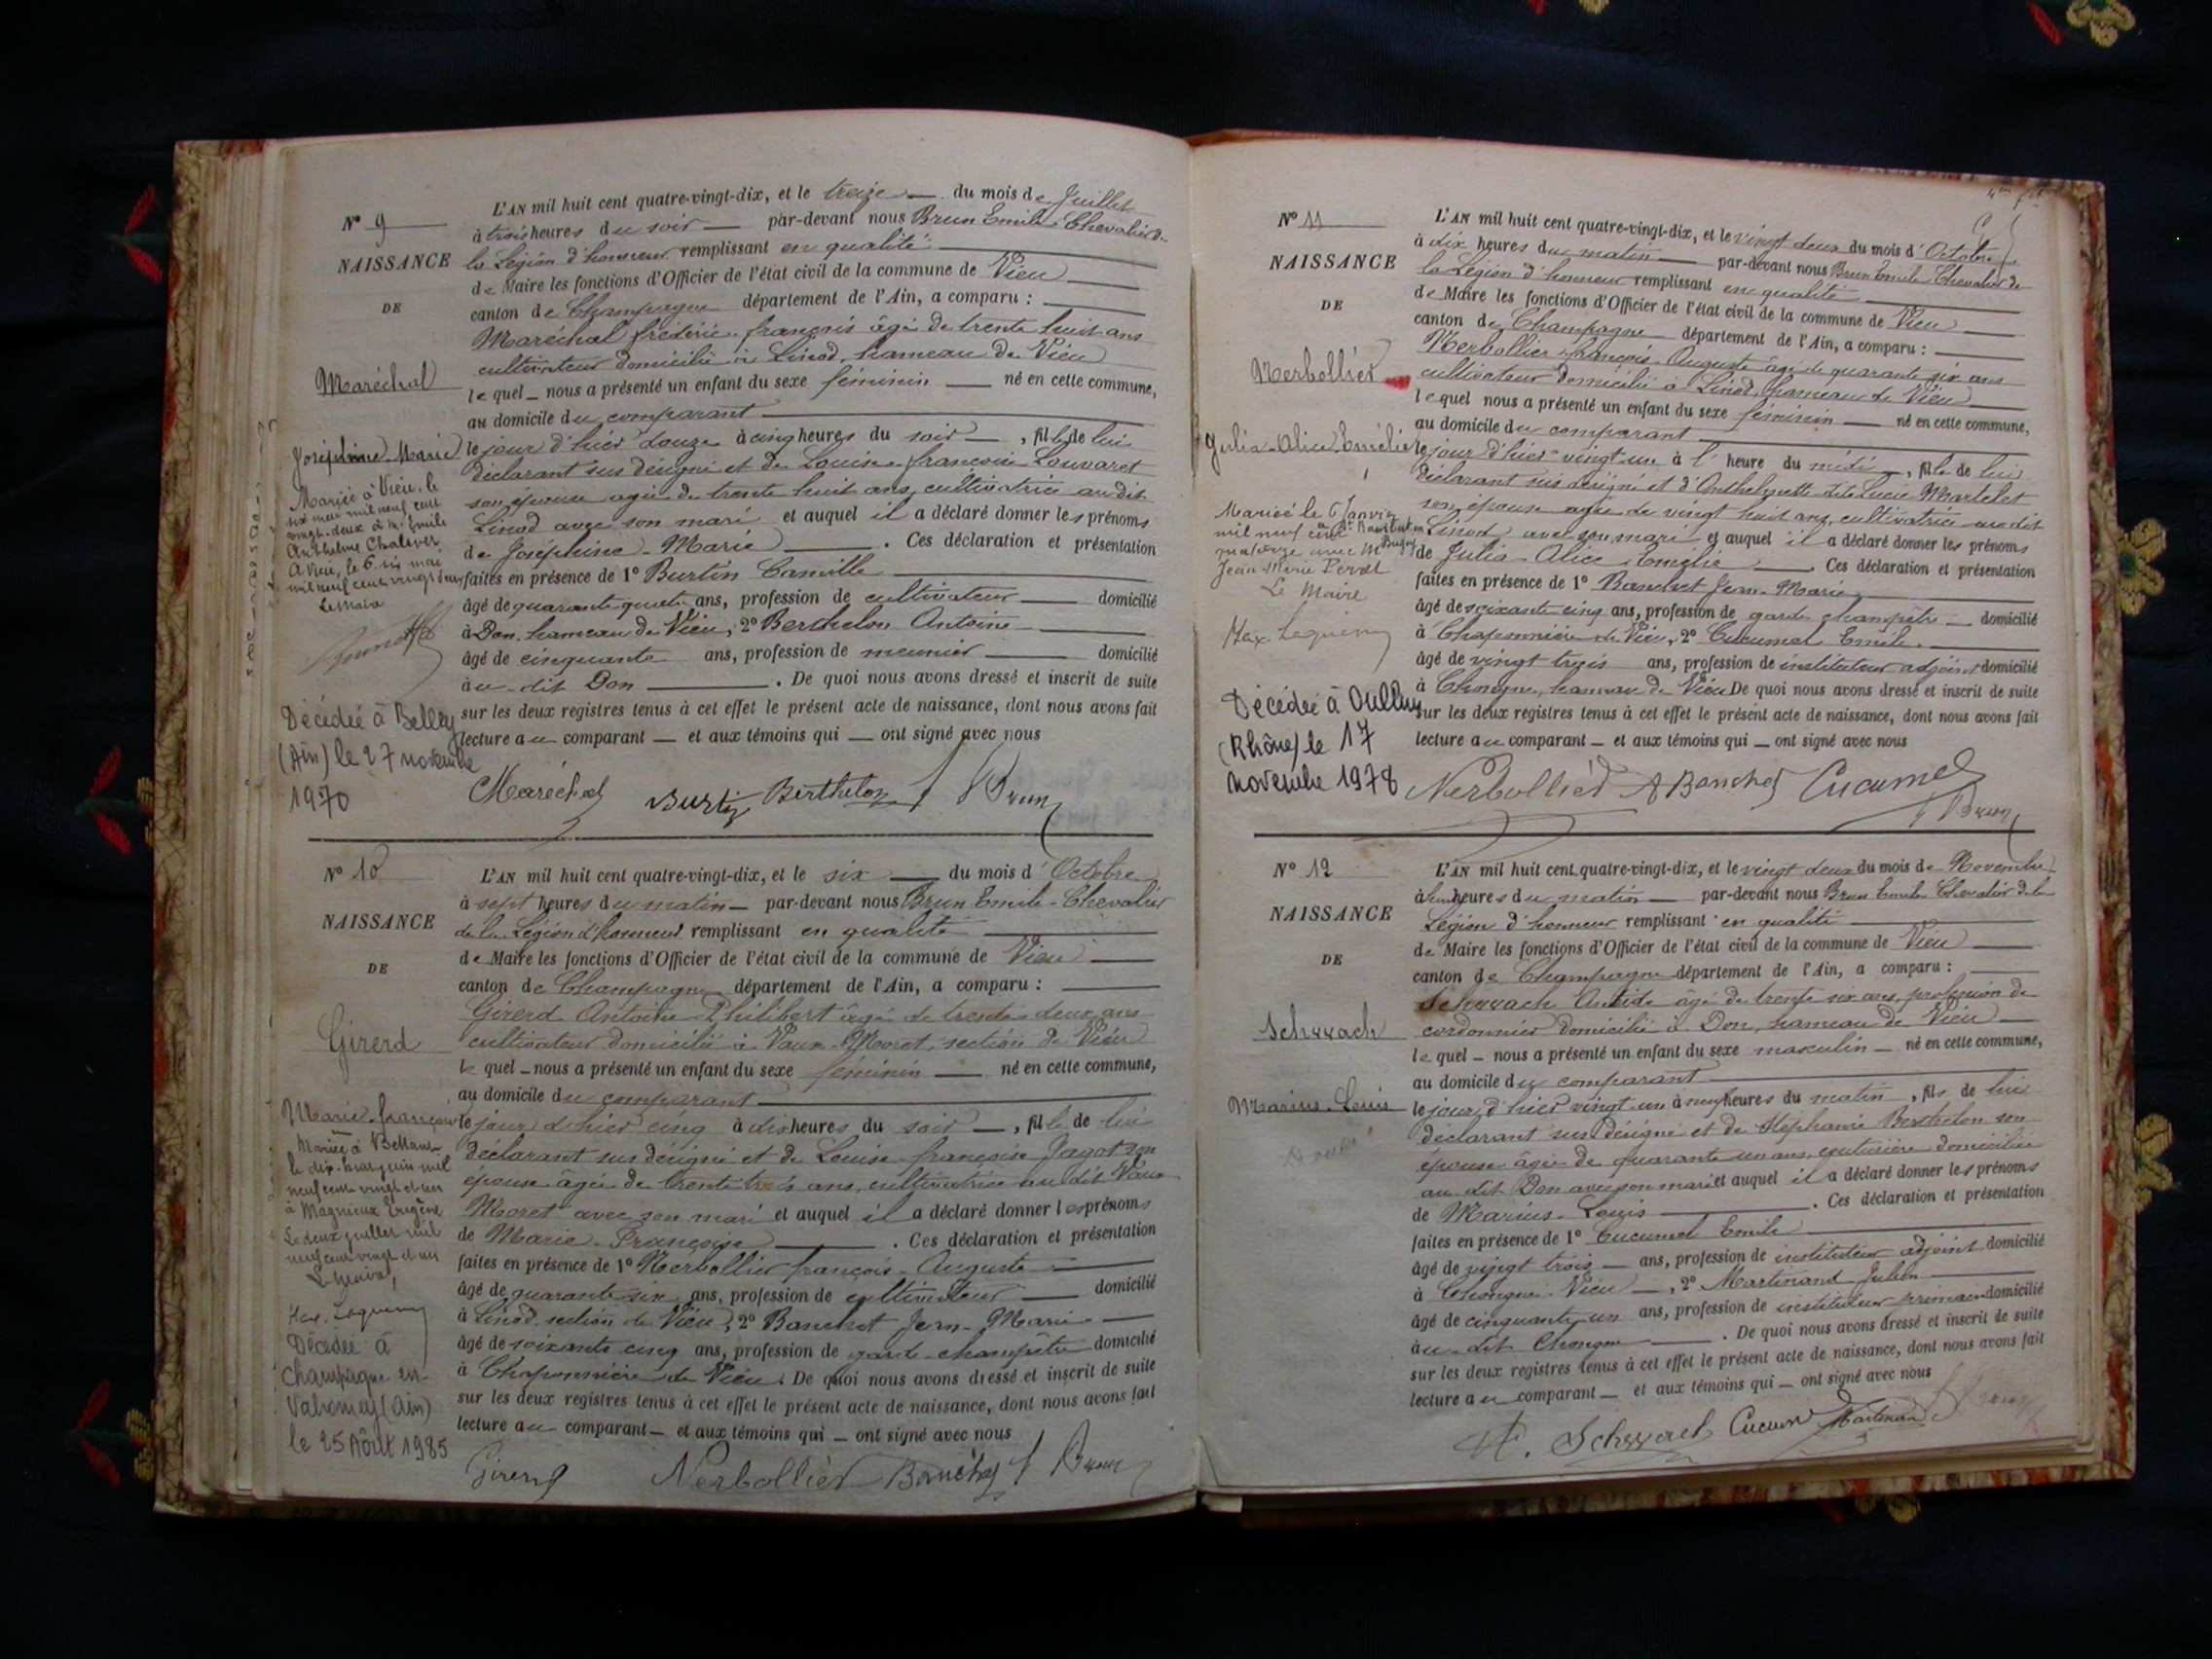 L'AN mil huit cent quatre-vingt-dix, et le treize du mois de Juillet
N° 9
à trois heures du soir par-devant nous Brun Emile Chevalier de
la Légion d'honneur remplissant en qualité
NAISSANCE
de Maire les fonctions d'Officier de l'état civil de la commune de Vieu
DE
canton de Champagne département de l'Ain, a comparu :
Maréchal frédéric françois âgé de trente huit ans
cultivateur domicilié à Linod, hameau de Vieu
Maréchal
lequel nous a présenté un enfant du sexe féminin né en cette commune,
au domicile du comparant
Joséphine Marie
le jour d'hier douze à cinq heures du soir, fille de lui
déclarant sus désigné et de Louise françoise Louvaret
son épouse agée de trente huit ans, cultivatrice au dit
Linod avec son mari et auquel il a déclaré donner les prénoms
de Joséphine Marie. Ces déclaration et présentation
faites en présence de 1° Burtin Camille
âgé de quarante quatre ans, profession de cultivateur domicilié
à Don, hameau de Vieu, 2° Berthelon Antoine
âgé de cinquante ans, profession de meunier domicilié
au dit Don. De quoi nous avons dressé et inscrit de suite
sur les deux registres tenus à cet effet le présent acte de naissance, dont nous avons fait
lecture au comparant et aux témoins qui ont signé avec nous
Mariée à Vieu, le
six mai mil neuf cent
vingt-deux à Mr Emile
Anthelme Chalever
A Vieu, le 6 six mai
mil neuf cent vingt deux
Le Maire
Décédée à Belley
(Ain) le 27 novembre
1970
Maréchal Burtin Berthelon Brun
N° 10
L'AN mil huit cent quatre-vingt-dix, et le six du mois d'Octobre
à sept heures du matin par-devant nous Brun Emile Chevalier
NAISSANCE
de la Légion d'honneur remplissant en qualité
de Maire les fonctions d'Officier de l'état civil de la commune de Vieu
DE
canton de Champagne département de l'Ain, a comparu :
Girerd Antoine Philibert âgé de trente deux ans
Girerd
cultivateur domicilié à Vaux-Moret, section de Vieu
lequel nous a présenté un enfant du sexe féminin né en cette commune,
au domicile du comparant
Marie françoise
le jour d'hier cinq à dix heures du soir, fille de lui
déclarant sus désigné et de Louise françoise Jagot son
épouse âgée de trente trois ans, cultivatrice au dit Vaux
Moret avec son mari et auquel il a déclaré donner les prénoms
de Marie Françoise. Ces déclaration et présentation
faites en présence de 1° Nerbollier françois Auguste
âgé de quarante six ans, profession de cultivateur domicilié
à Linod section de Vieu, 2° Banchet Jean Marie
âgé de soixante cinq ans, profession de garde champêtre domicilié
à Chaponnière de Vieu. De quoi nous avons dressé et inscrit de suite
sur les deux registres tenus à cet effet le présent acte de naissance, dont nous avons fait
lecture au comparant et aux témoins qui ont signé avec nous
Mariée à
le dix juin mil
neuf cent vingt et un
à Magnieux Eugène
Le deux juillet mil
neuf cent vingt et un
Le Maire,
Décédée à
Champagne-en-
Valromey (Ain)
le 25 Août 1985
Girerd Nerbollier Banchet Brun
N° 11
L'AN mil huit cent quatre-vingt-dix, et le vingt deux du mois d'Octobre
à dix heures du matin par-devant nous Brun Emile Chevalier de
NAISSANCE
la Légion d'honneur remplissant en qualité
de Maire les fonctions d'Officier de l'état civil de la commune de Vieu
DE
canton de Champagne département de l'Ain, a comparu :
Nerbollier françois Auguste âgé de quarante six ans
Nerbollier
cultivateur domicilié à Linod, hameau de Vieu
lequel nous a présenté un enfant du sexe féminin né en cette commune,
au domicile du comparant
Julia Alice Emélie
le jour d'hier vingt un à l'heure du midi, fille de lui
déclarant sus désigné et d'Anthelmette Lucie Martelet
son épouse agée de vingt huit ans, cultivatrice au dit
Linod avec son mari et auquel il a déclaré donner les prénoms
de Julia Alice Emélie. Ces déclaration et présentation
faites en présence de 1° Banchet Jean Marie
âgé de soixante cinq ans, profession de garde champêtre domicilié
à Chaponnière de Vieu, 2° Cucumel Emile
âgé de vingt trois ans, profession de instituteur adjoint domicilié
à Chongne, hameau de Vieu De quoi nous avons dressé et inscrit de suite
sur les deux registres tenus à cet effet le présent acte de naissance, dont nous avons fait
lecture au comparant et aux témoins qui ont signé avec nous
Mariée le 6 Janvier
mil neuf cent
quatorze avec Mr
Jean Marie Perret
Le Maire
Décédée à Oullins
(Rhône) le 17
novembre 1978
Nerbollier Banchet Cucumel
Brun
N° 12
L'AN mil huit cent quatre-vingt-dix, et le vingt deux du mois de Novembre
à heures du matin par-devant nous Brun Emile Chevalier de la
NAISSANCE
Légion d'honneur remplissant en qualité
de Maire les fonctions d'Officier de l'état civil de la commune de Vieu
DE
canton de Champagne département de l'Ain, a comparu :
Schwach Antide agé de trente six ans, profession de
Schwach
cordonnier domicilié à Don, hameau de Vieu
lequel nous a présenté un enfant du sexe masculin né en cette commune,
au domicile du comparant
Marius Louis
le jour d'hier vingt un à neuf heures du matin, fils de lui
déclarant sus désigné et de Stéphanie Berthelon son
épouse âgée de quarante un ans, couturière domiciliée
au dit Don avec son mari et auquel il a déclaré donner les prénoms
de Marius Louis. Ces déclaration et présentation
faites en présence de 1° Cucumel Emile
âgé de vingt trois ans, profession de instituteur adjoint domicilié
à Chongne Vieu, 2° Martinand Julien
âgé de cinquante un ans, profession de instituteur primaire domicilié
au dit Chongne. De quoi nous avons dressé et inscrit de suite
sur les deux registres tenus à cet effet le présent acte de naissance, dont nous avons fait
lecture au comparant et aux témoins qui ont signé avec nous
Cucumel Martinand Brun